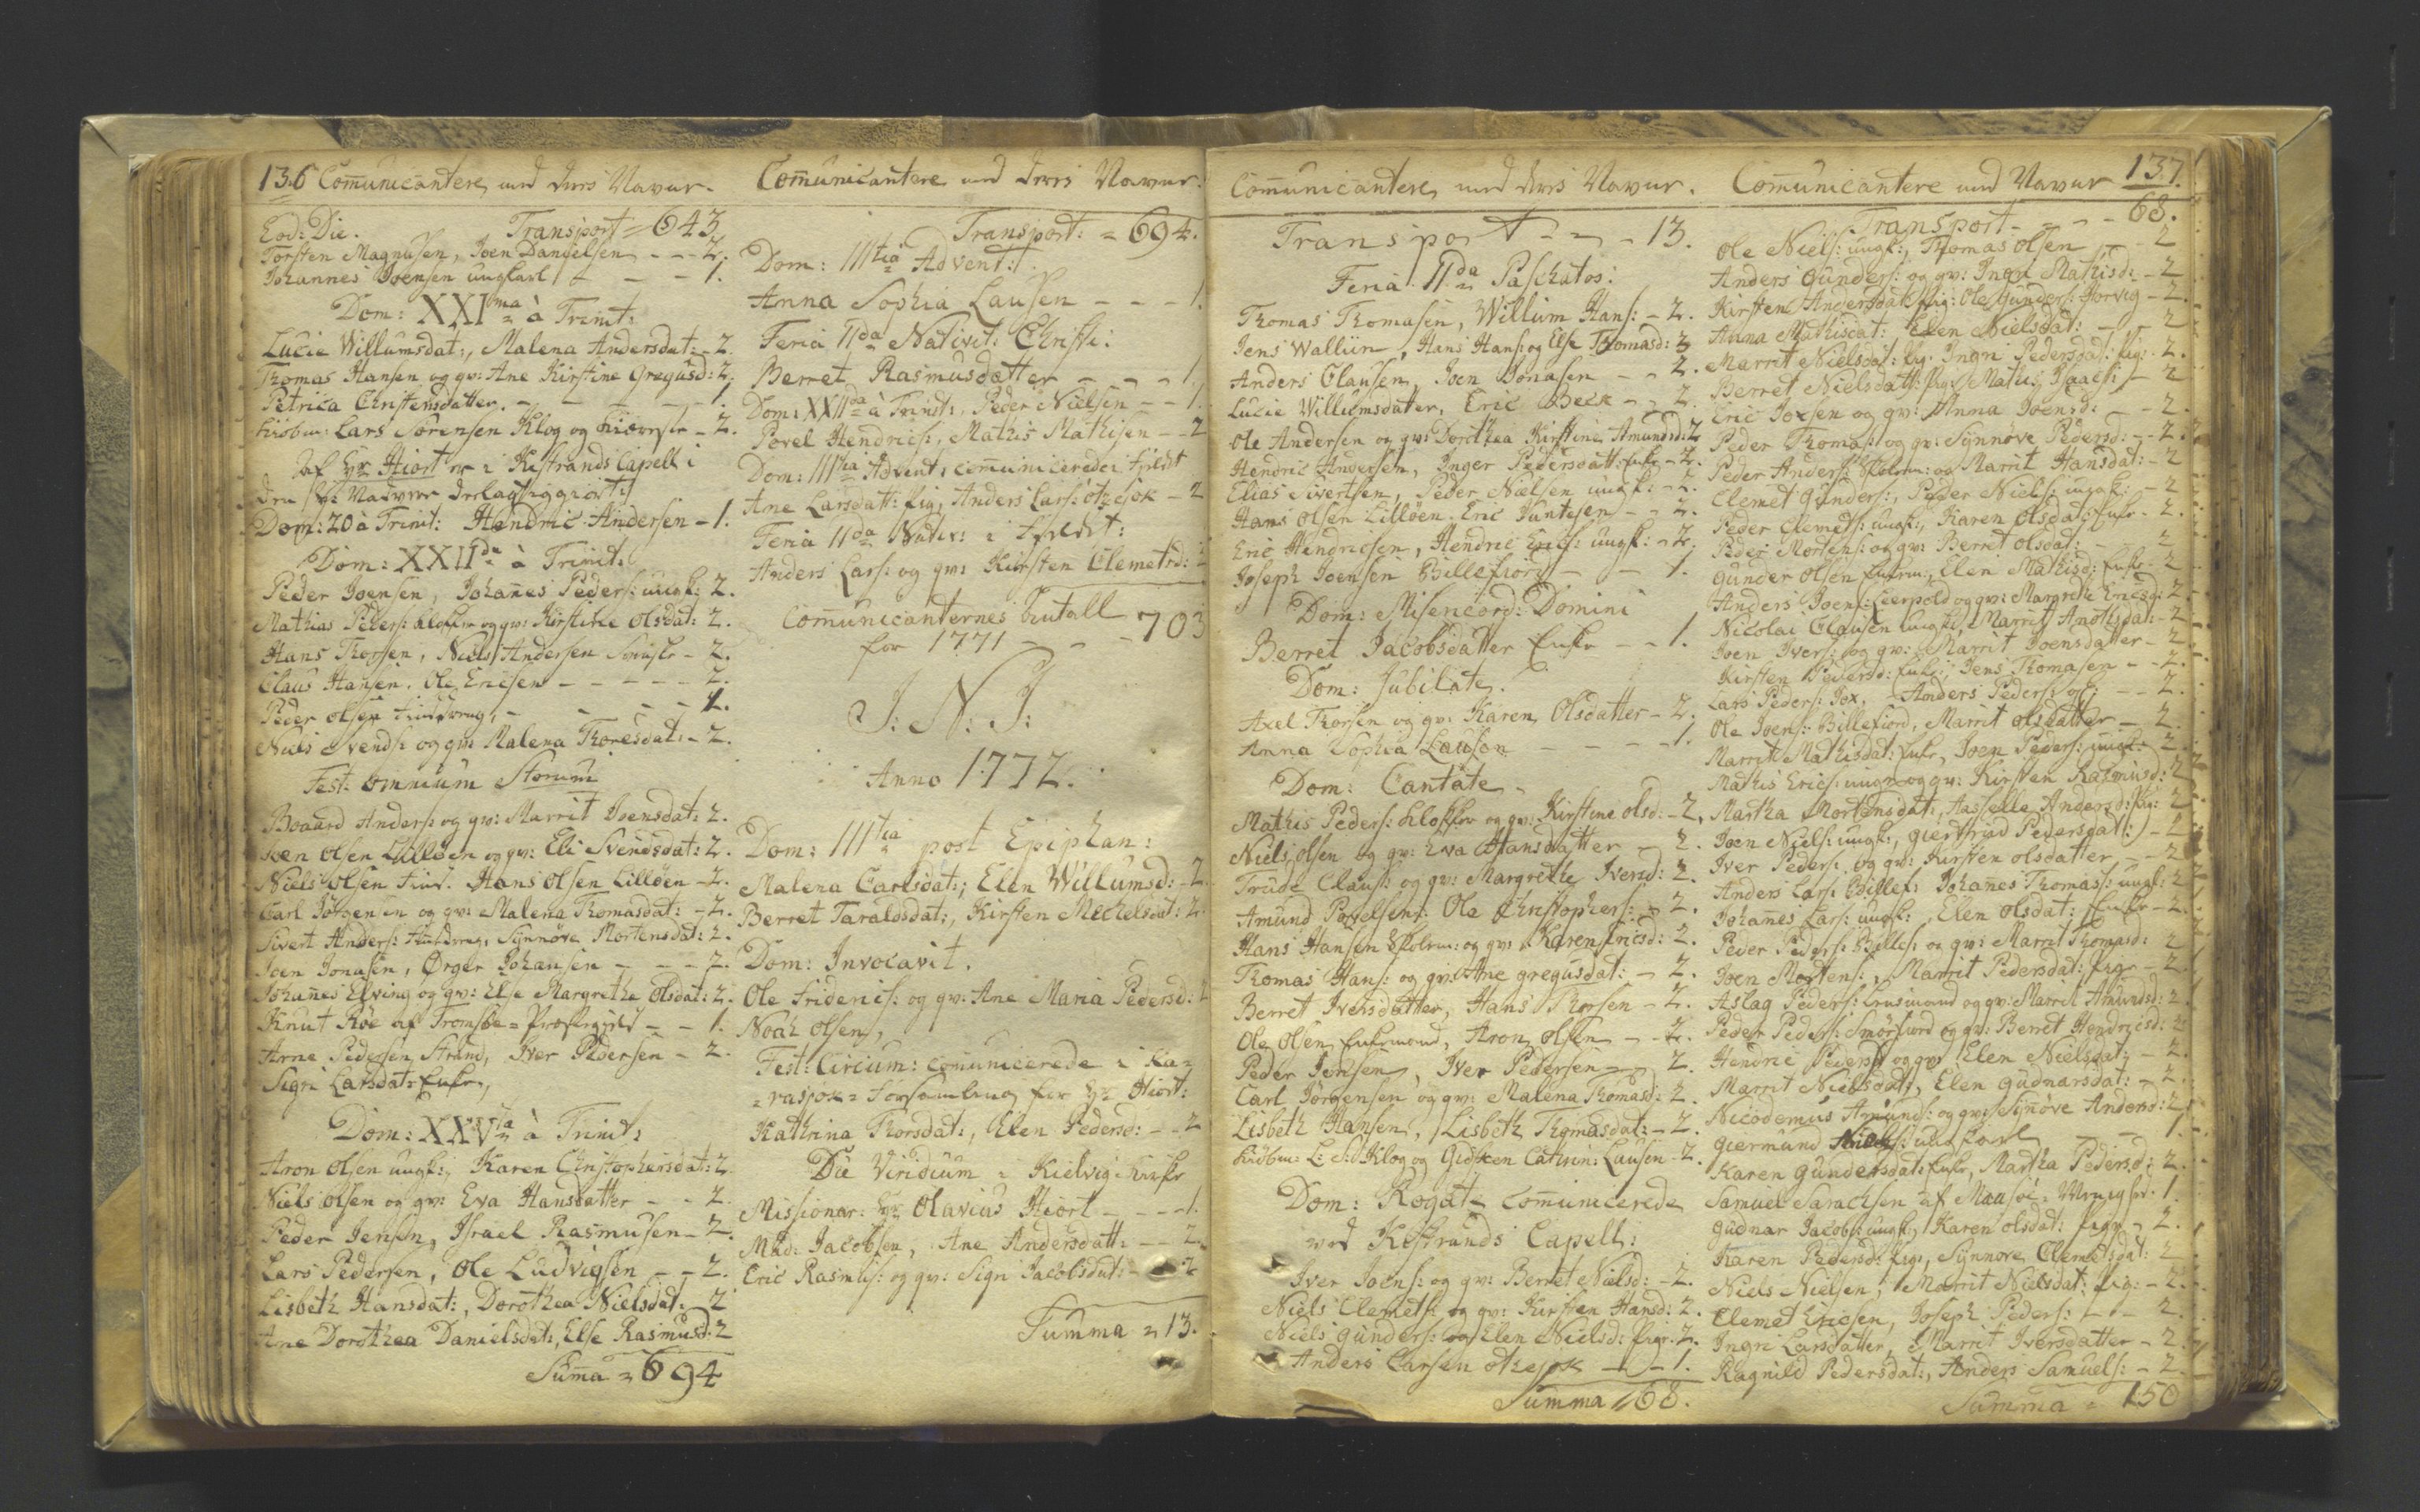 136 Com̃unicantere med deres Navne.
Eod: Die. Transport = 643
Torsten Magnusen, Joen Danielsen - - - 2.
Johannes Joensen ungkarl - - - 1.
Dom: XXIma à Trinit:
Lucie Willumsdat:, Malena Andersdat: - 2.
Thomas Hansen og qv: Ane Kirstine Gregusd: 2.
Petrica Christensdatter. - - - - 1.
Kiøbm: Lars Sørensen Klog og - 2.
af Hr Hiort er i Kistrands Capell i
Dom: 20 à Trinit: Hendric Andersen - 1.
Dom: XXIIda à Trinit:
Peder Joensen, Johan̄es Peders: ungk: 2.
Mathias Peders: klokker og qv: Kirstine Olsdat: 2.
Hans Thorsen, Niels Andersen - 2.
Claus Hansen, Ole Ericsen - - - - - 2.
Peder Olsen - - - 1.
Niels Svends: og qv: Malena Thoresdat: - 2.
Fest: omnium Storum
Boaard Anders: og qv: Marrit Joensdat: 2.
Joen Olsen Lilløen og qv: Eli Svendsdat: 2.
Niels Olsen Hans Olsen Lilløen - 2.
Carl Jörgensen og qv: Malena Thomasdat: - 2.
Sivert Anders: Synnöve Mortensdat: 2.
Joen Jonasen, Ørger Johansen - - - 2.
Johan̄es Elving og qv: Else Margrethe Olsdat: 2.
Knut Röe af Tromsöe = - - 1.
Arne Pedersen Strand, Iver Pedersen - 2.
Sigri Larsdat: Enke,
Dom: XXVta à Trinit:
Aron Olsen ungk:, Karen Christophersdat: 2.
Niels Olsen og qv: Eva Hansdatter - - 2.
Peder Jensen, Israel Rasmusen - 2.
Lars Pedersen, Ole Ludvigsen - - 2.
Lisbeth Hansdat:, Dorothea Nielsdat: 2
Ane Dorothea Danielsdat:, Else Rasmusd: 2
Sum̄a = 694
Com̃unicantere med deres Navne.
Transport: = 694.
Dom: IIItia Advent:
Anna Sophia Lausen - - - 1.
Feria IIda Nativit: Christi:
Berret Rasmusdatter - - - 1.
Dom: XXIIda à Trinit: Peder Nielsen - - 1.
Povel Hendrics:, Mathis Mathisen - - 2
Dom: IIItia Advent: com̄unicerede i
Ane Larsdat: pig, Anders Lars: - 2
Feria IIda Nativ: i
Anders Lars: og qv: Kirsten Clemetsd: 2
Com̄unicanternes Antall
for 1771 - - - 703
J: N: J:
Anno 1772.
Dom: IIItia post Epiphan:
Malena Carlsdat:, Elen Willumsd: - 2
Berret Taraldsdat:, Kirsten Michelsdat: 2.
Dom: Invocavit.
Ole Friderics: og qv: Ane Maria Pedersd: 2
Noah Olsen,
Fest: Circum: com̄unicerede i Ka=
=rasjok = Forsamling for Hr Hiort:
Kathrina Thorsdat:, Elen Pedersd: - - 2
Die Viridium i Kielvig Kirke
Missionar: Hr Olavius Hiort - - - 1.
Mad: Jacobsen, Ane Andersdatt: - - 2.
Eric Rasmus: og qv: Sigri Jacobsdat: - 2
Summa = 13.
Com̃unicantere med deres Navne.
Transport - - - 13.
Feria IIda Paschatos:
Thomas Thomasen, Willum Hans: - 2.
Jens Walliin, Hans Hans: og Else Thomasd: 3
Anders Clausen, Joen Jonasen - - 2.
Lucie Willumsdatter, Eric Beck - - 2.
Ole Andersen og qv: Dorothea Kirstine Amundsd: 2
Hendric Andersen, Inger Pedersdatt: Enke - 2.
Elias Sivertsen, Peder Nielsen ungk: - 2.
Hans Olsen Lilløen, Eric - - 2.
Eric Hendricsen, Hendric Erics: ungk: - 2.
Joseph Joensen Billefiord - - - 1.
Dom: Misericord: Domini
Berret Jacobsdatter Enke - - 1.
Dom: Jubilate.
Axel Thorsen og qv: Karen Olsdatter - 2.
Anna Sophia Lauson - - - - 1.
Dom: Cantate.
Mathis Peders: klokker og qv: Kirstine Olsd: - 2.
Niels Olsen og qv: Eva Hansdatter - 2.
Trude Claus: og qv: Margrethe Iversd: 2.
Amund Povelsen, Ole Christophers: - 2.
Hans Hansen Skolem: og qv: Karen Ericsd: 2.
Thomas Hans: og qv: Ane Gregusdat: - 2.
Berret Iversdatter, Hans Thorsen - 2.
Ole Olsen Enkemand, Aron Olsen - - 2.
Peder Jensen, Iver Pedersen - - 2.
Carl Jörgensen og qv: Malena Thomasd: 2.
Lisbeth Hansen, Lisbeth Thomasdat: - 2.
Kiöbm: L: S: Klog og Gidsken Cathrin: Lausen - 2.
Dom: Rogat = com̄unicerede
ved Kistrands Capell:
Iver Joens: og qv: Berret Nielsd: - 2.
Niels Clemets: og qv: Kirsten Hansd: 2.
Niels Gunders: og Elen Nielsd: pige 2.
Anders Larsen - - 1.
Summa 68.
Com̃unicantere med Navne 137.
Transport - - - 68.
Ole Niels: ungk:, Thomas Olsen - - 2
Anders Gunders: og qv: Ingri Mathisd: - 2
Kirsten Andersdat: pig: Ole Gunders: - 2.
Anna Mathisdat: Elen Nielsdat: - - 2
Marrit Nielsdat: pig: Ingri Pedersdat: pig: - 2.
Berret Nielsdatt: pig: Mathis Isaacs: - 2
Eric Joxsen og qv: Anna Joensd: - - 2.
Peder Thomas: og qv: Synnöve Pedersd: - - 2.
Peder Anders: Skolem: og Marrit Hansdat: - 2
Clemet Gunders:, Peder Niels: ungk: - 2
Peder Clemets: ungk:, Karen Olsdat: Enke - 2.
Peder Mortens: og qv: Berret Olsdat: - - 2
Gunder Olsen Enkem:, Elen Mathisd: Enke - 2
Anders Joens: Leerpold og qv: Margrethe Ericsd: 2
Nicolai Clausen ungk:, Marrit - 2
Joen Ivers: og qv: Marrit Joensdatter - 2
Kirsten Pedersd: Enke, Jens Thomasen - - 2.
Lars Peders: Jox, Anders Peders: - - 2.
Ole Joens: Billefiord, Marrit Olsdatter - 2.
Marrit Mathisdat: Enke, Joen Peders: ungk: 2
Mathis Erics: og qv: Kirsten Rasmusd: 2
Martha Mortensdat:, Andersd: pig: 2
Joen Niels: ungk:, Giertrud Pedersdat: - 2
Iver Peders: og qv: Kirsten Olsdatter - - 2
Anders Lars: Billef: Johan̄es Thomass: ungk: 2
Johan̄es Lars: ungk:, Elen Olsdat: Enke - 2.
Peder Peders: Billef: og qv: Marrit Thomasd: 2
Joen Mortens:, Marrit Pedersdat: pige - 2
Aslag Peders: og qv: Marrit Amundsd: 2
Peder Peders: Smörfiord og qv: Berret Hendricsd: 2
Hendric Peders: og qv: Elen Nielsdat: - 2.
Marrit Nielsdat:, Elen Gudnarsdat: - 2.
Nicodemus Amunds: og qv: Synöve Andersd: 2
Giermund Niels: ungkarl - - 1.
Karen Gundersdat: Enke, Martha Pedersd: 2.
Samuel Sarachsen af Maasöe = 1.
Gudnar Jacobs: ungk:, Karen Olsdat: pige - 2.
Karen Pedersd: pige, Synnove Clemetsdat: 2
Niels Nielsen, Marrit Nielsdat: pig: - 2.
Clemet Ericsen, Joseph Peders: - - 2
Ingri Larsdatter, Marrit Iversdatter - 2
Ragnild Pedersdat:, Anders Samuels: - 2
Summa = 150